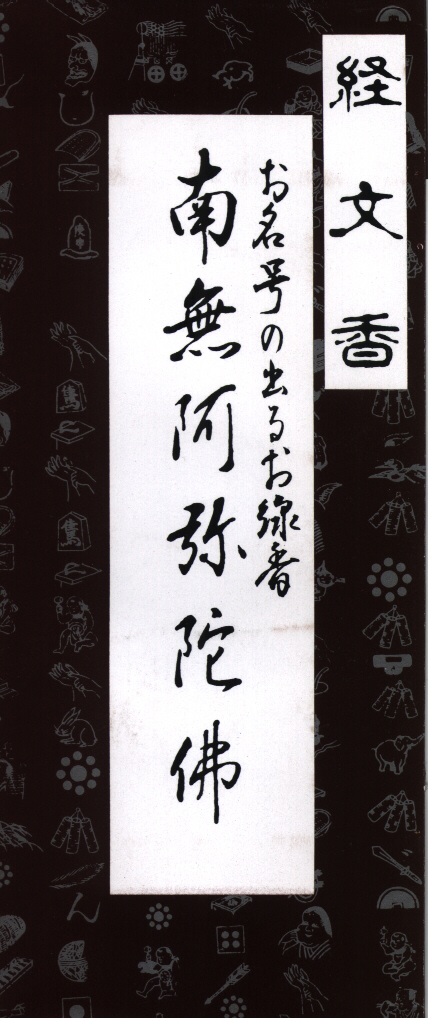 経文香
お名号の出るお線香
南無阿弥陀佛